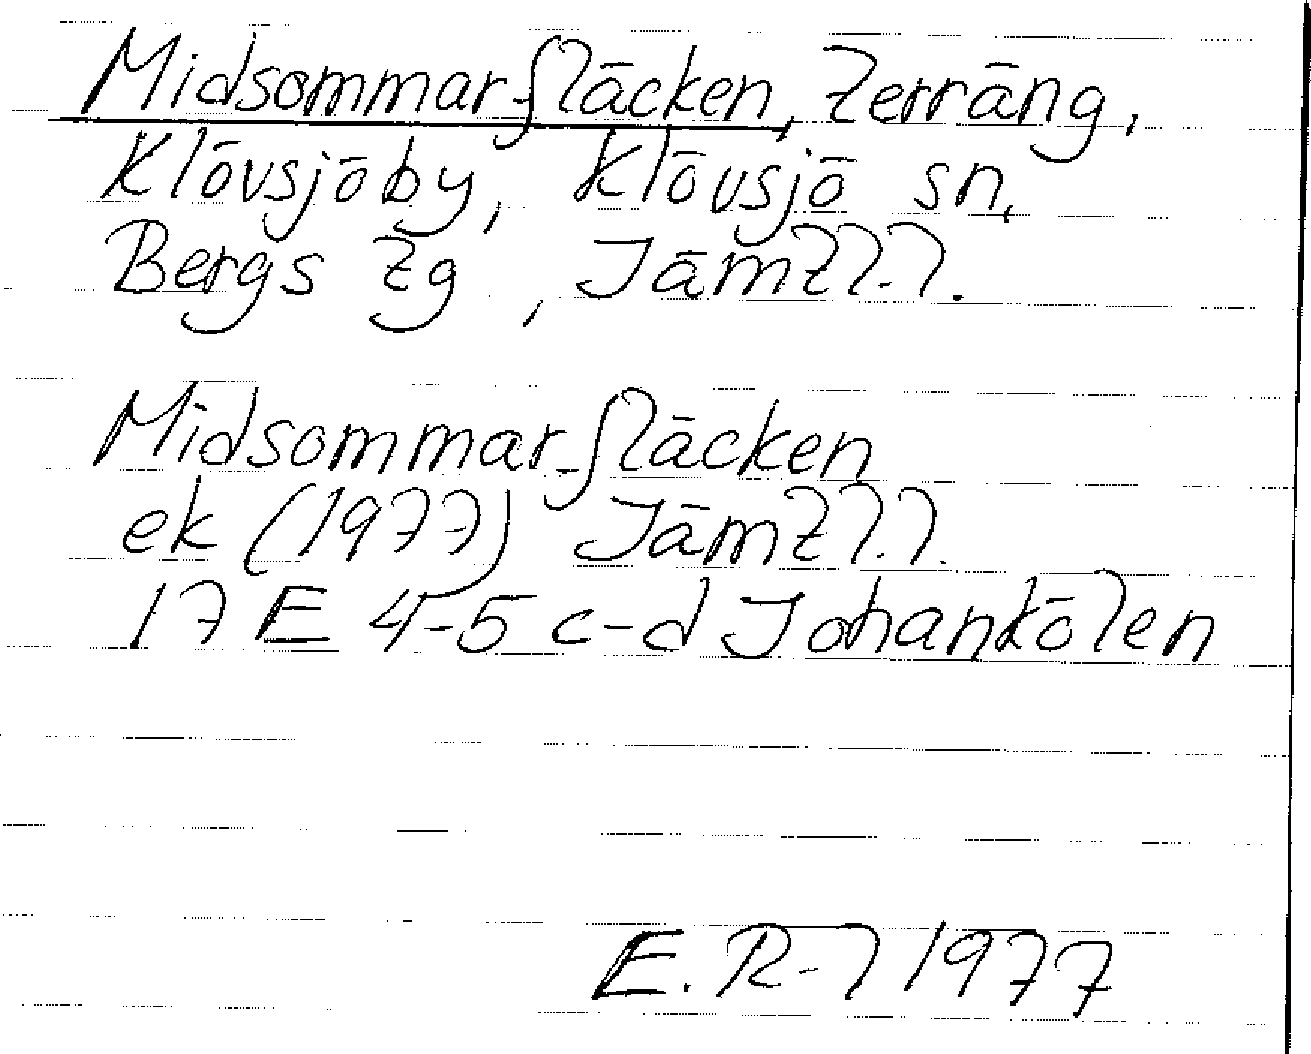 Midsommarfläcken, terräng,
Klövsjöby, Klövsjö sn,
Bergs tg, Jämtl.l.
Midsommarfläcken
ek (1977) Jämtl.l.
17 E 4-5 c-d Johankölen
E.R-l 1977